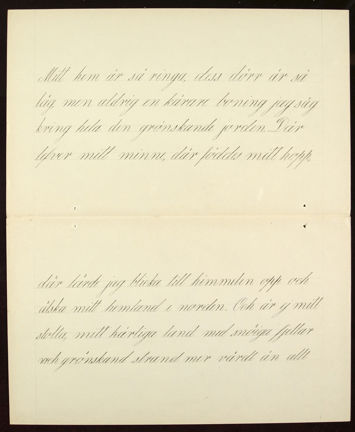 Mitt hem är så ringa, dess dörr är så
låg, men aldrig en kärare boning jeg såg
kring hela den grönskande jorden. Där
lefver mitt minne, där föddes mitt hopp,
där lärde jeg blicka till himmelen opp och
älska mitt hemland i norden. Och är y mitt
stolta, mitt härliga land med snöiga fjellar
och grönskand strand mer värdt än allt